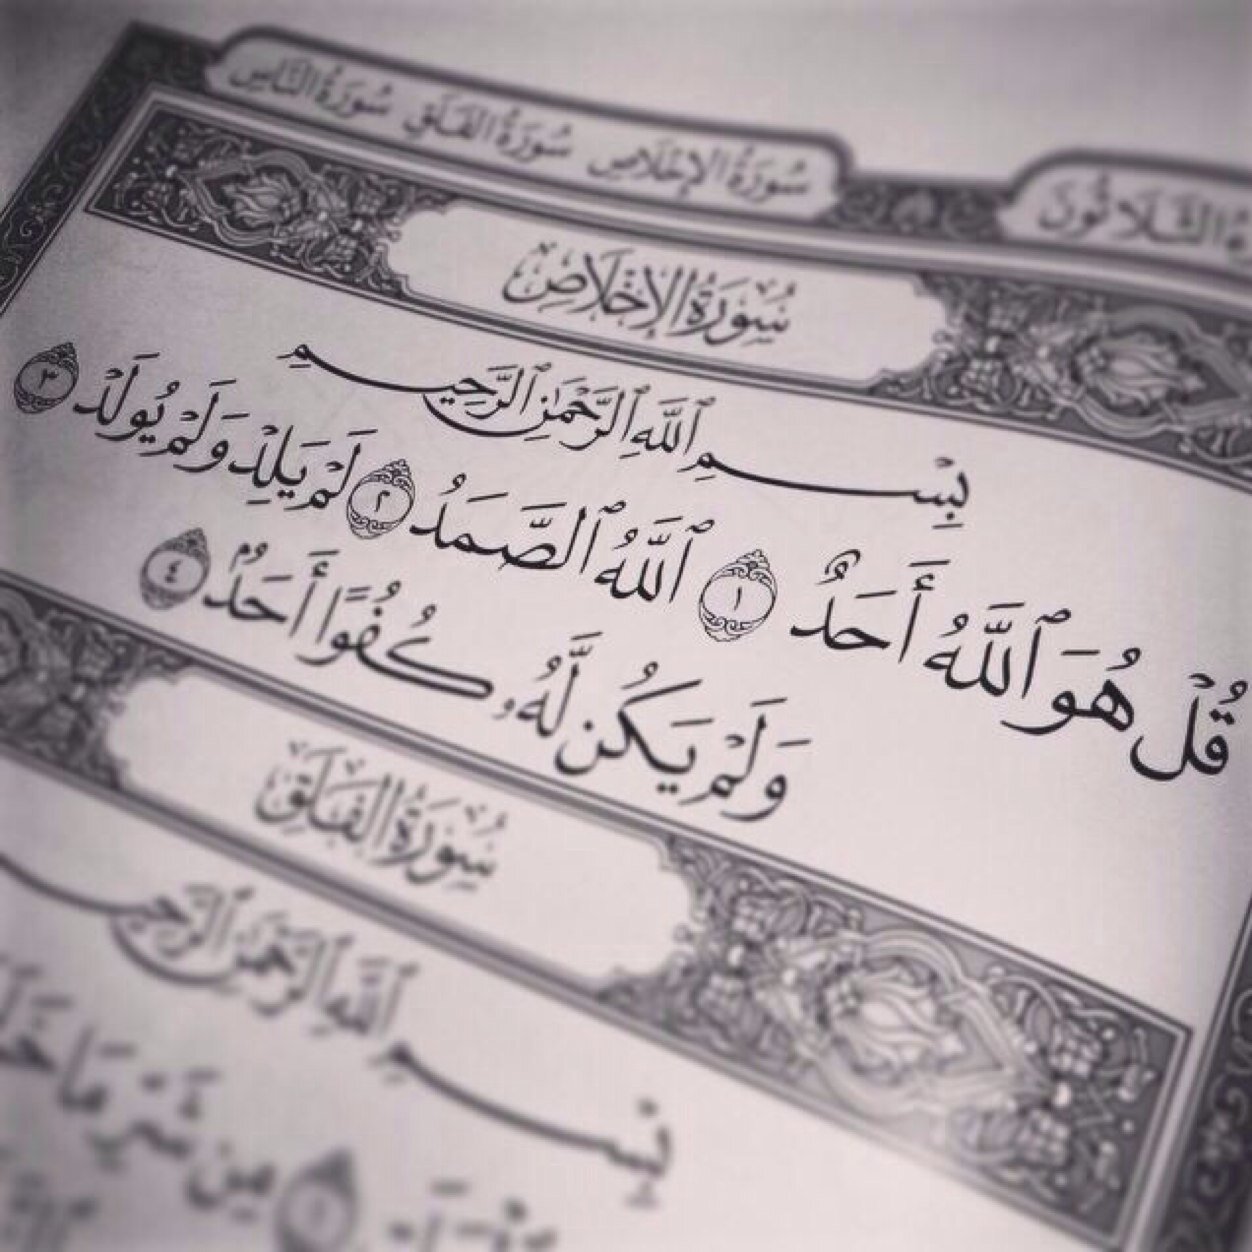 سُورَةُ الإِخْلَاصِ سُورَةُ الفَلَقِ سُورَةُ النَّاسِ
الثَّلَاثُونَ
سُورَةُ الإِخْلَاصِ
بِسْمِ ٱللَّهِ ٱلرَّحْمَٰنِ ٱلرَّحِيمِ
قُلْ هُوَ ٱللَّهُ أَحَدٌ ١ ٱللَّهُ ٱلصَّمَدُ ٢ لَمْ يَلِدْ وَلَمْ يُولَدْ ٣
وَلَمْ يَكُن لَّهُۥ كُفُوًا أَحَدٌۢ ٤
سُورَةُ الفَلَقِ
بِسْمِ ٱللَّهِ ٱلرَّحْمَٰنِ ٱلرَّحِيمِ
مِن شَرِّ مَا